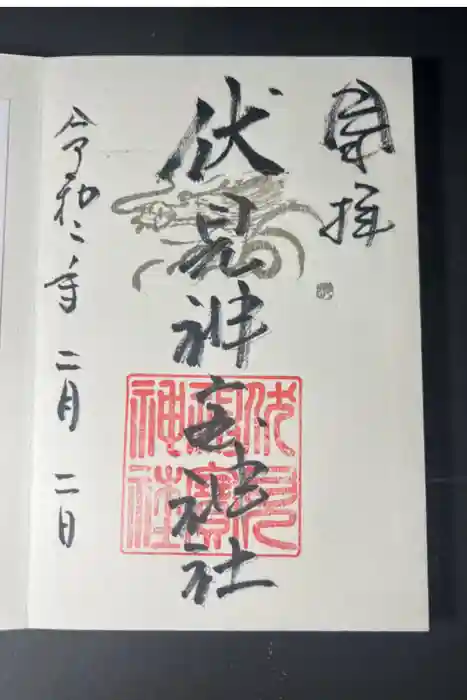 奉拝
伏見神宝神社
伏見
神寳
神社
令和二年 二月 二日